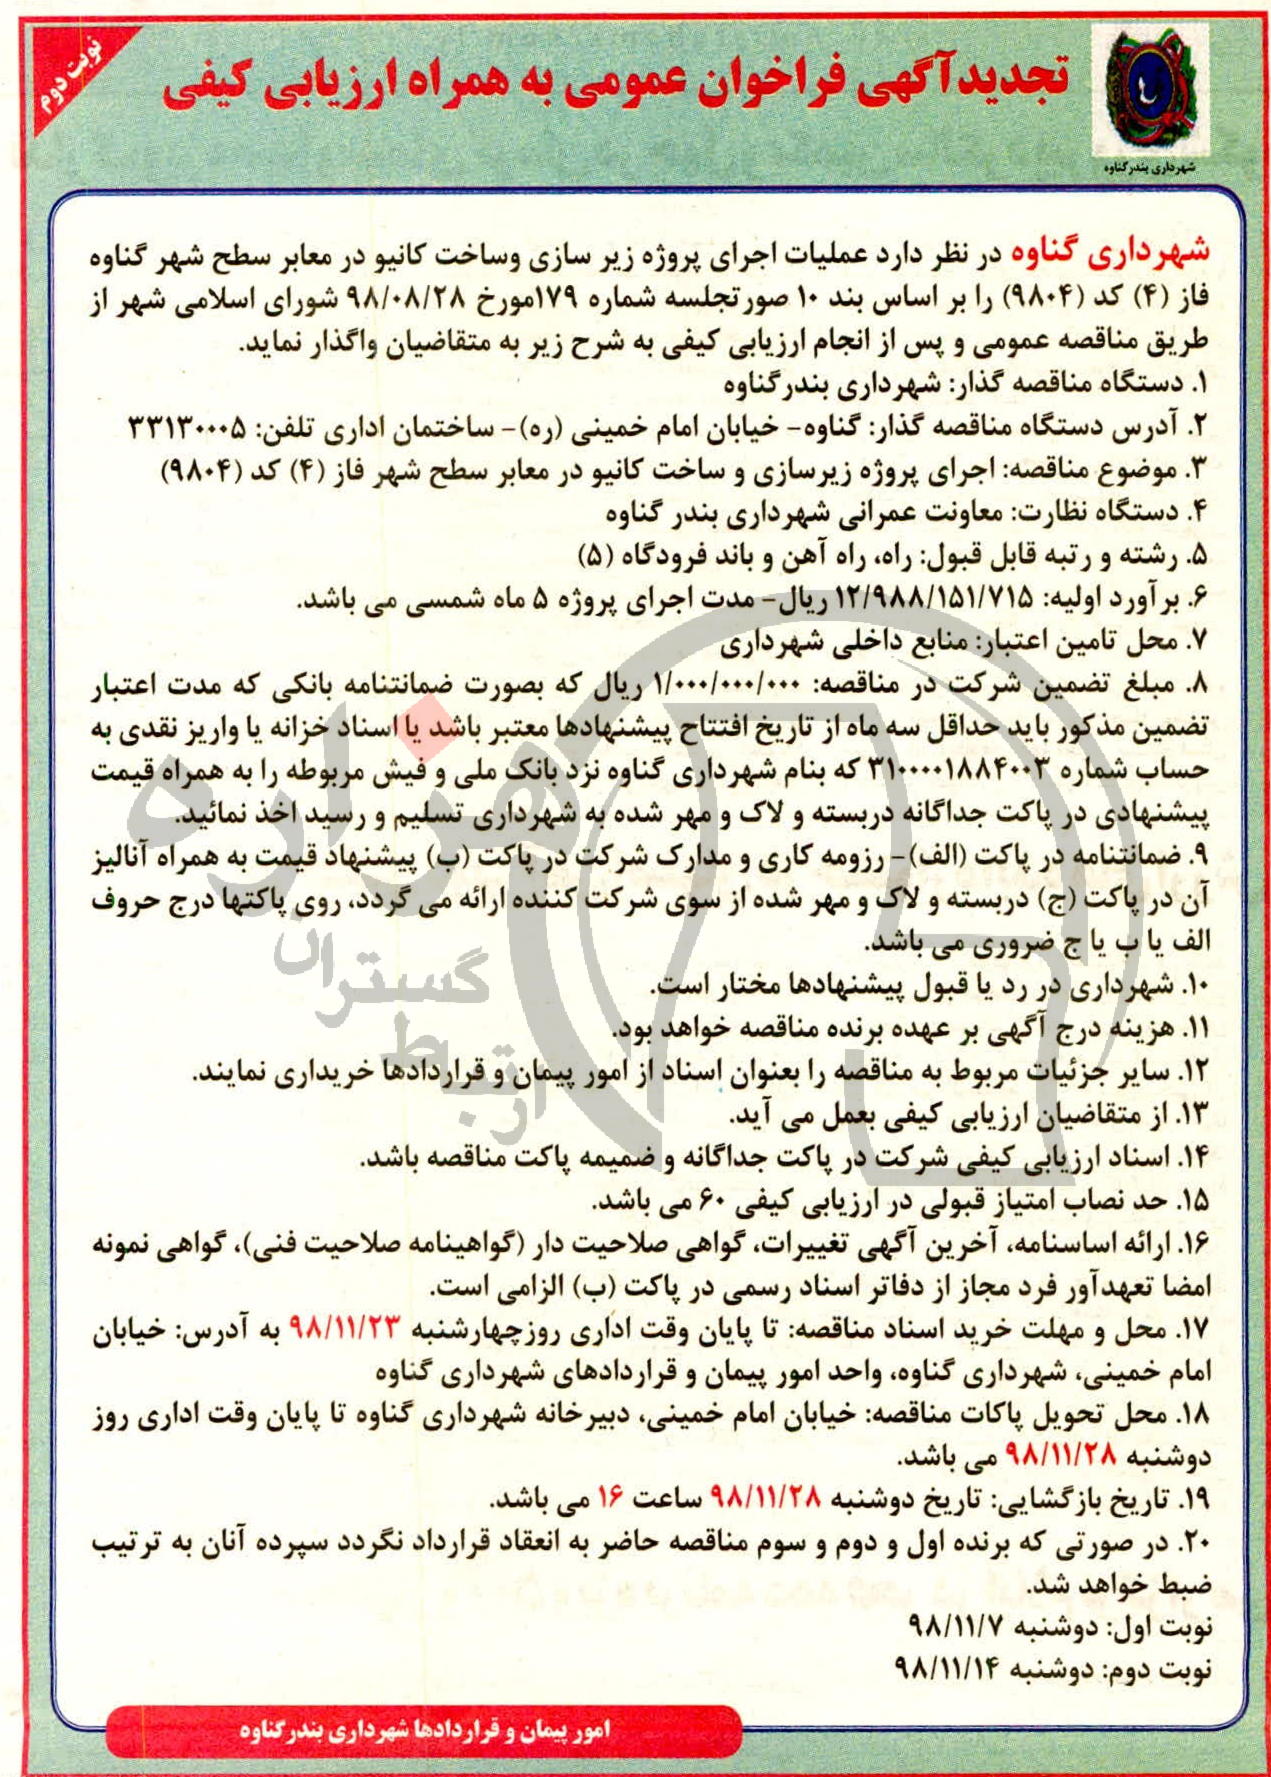 نوبت دوم
تجدیدآگهی فراخوان عمومی به همراه ارزیابی کیفی
شهرداری بندرگناوه
شهرداری گناوه در نظر دارد عملیات اجرای پروژه زیر سازی وساخت کانیو در معابر سطح شهر گناوه
فاز (۴) کد (۹۸۰۴) را بر اساس بند ۱۰ صورتجلسه شماره ۱۷۹مورخ ۹۸/۰۸/۲۸ شورای اسلامی شهر از
طریق مناقصه عمومی و پس از انجام ارزیابی کیفی به شرح زیر به متقاضیان واگذار نماید.
۱. دستگاه مناقصه گذار: شهرداری بندرگناوه
۲. آدرس دستگاه مناقصه گذار: گناوه- خیابان امام خمینی (ره)- ساختمان اداری تلفن: ۳۳۱۳۰۰۰۵
۳. موضوع مناقصه: اجرای پروژه زیرسازی و ساخت کانیو در معابر سطح شهر فاز (۴) کد (۹۸۰۴)
۴. دستگاه نظارت: معاونت عمرانی شهرداری بندر گناوه
۵. رشته و رتبه قابل قبول: راه، راه آهن و باند فرودگاه (۵)
۶. برآورد اولیه: ۱۲/۹۸۸/۱۵۱/۷۱۵ ریال- مدت اجرای پروژه ۵ ماه شمسی می باشد.
۷. محل تامین اعتبار: منابع داخلی شهرداری
۸. مبلغ تضمین شرکت در مناقصه: ۱/۰۰۰/۰۰۰/۰۰۰ ریال که بصورت ضمانتنامه بانکی که مدت اعتبار
تضمین مذکور باید حداقل سه ماه از تاریخ افتتاح پیشنهادها معتبر باشد یا اسناد خزانه یا واریز نقدی به
حساب شماره ۳۱۰۰۰۰۱۸۸۴۰۰۳ که بنام شهرداری گناوه نزد بانک ملی و فیش مربوطه را به همراه قیمت
پیشنهادی در پاکت جداگانه دربسته و لاک و مهر شده به شهرداری تسلیم و رسید اخذ نمائید.
۹. ضمانتنامه در پاکت (الف)- رزومه کاری و مدارک شرکت در پاکت (ب) پیشنهاد قیمت به همراه آنالیز
آن در پاکت (ج) دربسته و لاک و مهر شده از سوی شرکت کننده ارائه می گردد، روی پاکتها درج حروف
الف یا ب یا ج ضروری می باشد.
۱۰. شهرداری در رد یا قبول پیشنهادها مختار است.
۱۱. هزینه درج آگهی بر عهده برنده مناقصه خواهد بود.
۱۲. سایر جزئیات مربوط به مناقصه را بعنوان اسناد از امور پیمان و قراردادها خریداری نمایند.
۱۳. از متقاضیان ارزیابی کیفی بعمل می آید.
۱۴. اسناد ارزیابی کیفی شرکت در پاکت جداگانه و ضمیمه پاکت مناقصه باشد.
۱۵. حد نصاب امتیاز قبولی در ارزیابی کیفی ۶۰ می باشد.
۱۶. ارائه اساسنامه، آخرین آگهی تغییرات، گواهی صلاحیت دار (گواهینامه صلاحیت فنی)، گواهی نمونه
امضا تعهدآور فرد مجاز از دفاتر اسناد رسمی در پاکت (ب) الزامی است.
۱۷. محل و مهلت خرید اسناد مناقصه: تا پایان وقت اداری روزچهارشنبه ۹۸/۱۱/۲۳ به آدرس: خیابان
امام خمینی، شهرداری گناوه، واحد امور پیمان و قراردادهای شهرداری گناوه
۱۸. محل تحویل پاکات مناقصه: خیابان امام خمینی، دبیرخانه شهرداری گناوه تا پایان وقت اداری روز
دوشنبه ۹۸/۱۱/۲۸ می باشد.
۱۹. تاریخ بازگشایی: تاریخ دوشنبه ۹۸/۱۱/۲۸ ساعت ۱۶ می باشد.
۲۰. در صورتی که برنده اول و دوم و سوم مناقصه حاضر به انعقاد قرارداد نگردد سپرده آنان به ترتیب
ضبط خواهد شد.
نوبت اول: دوشنبه ۹۸/۱۱/۷
نوبت دوم: دوشنبه ۹۸/۱۱/۱۴
امور پیمان و قراردادها شهرداری بندرگناوه
هزاره
گستران
ارتباط